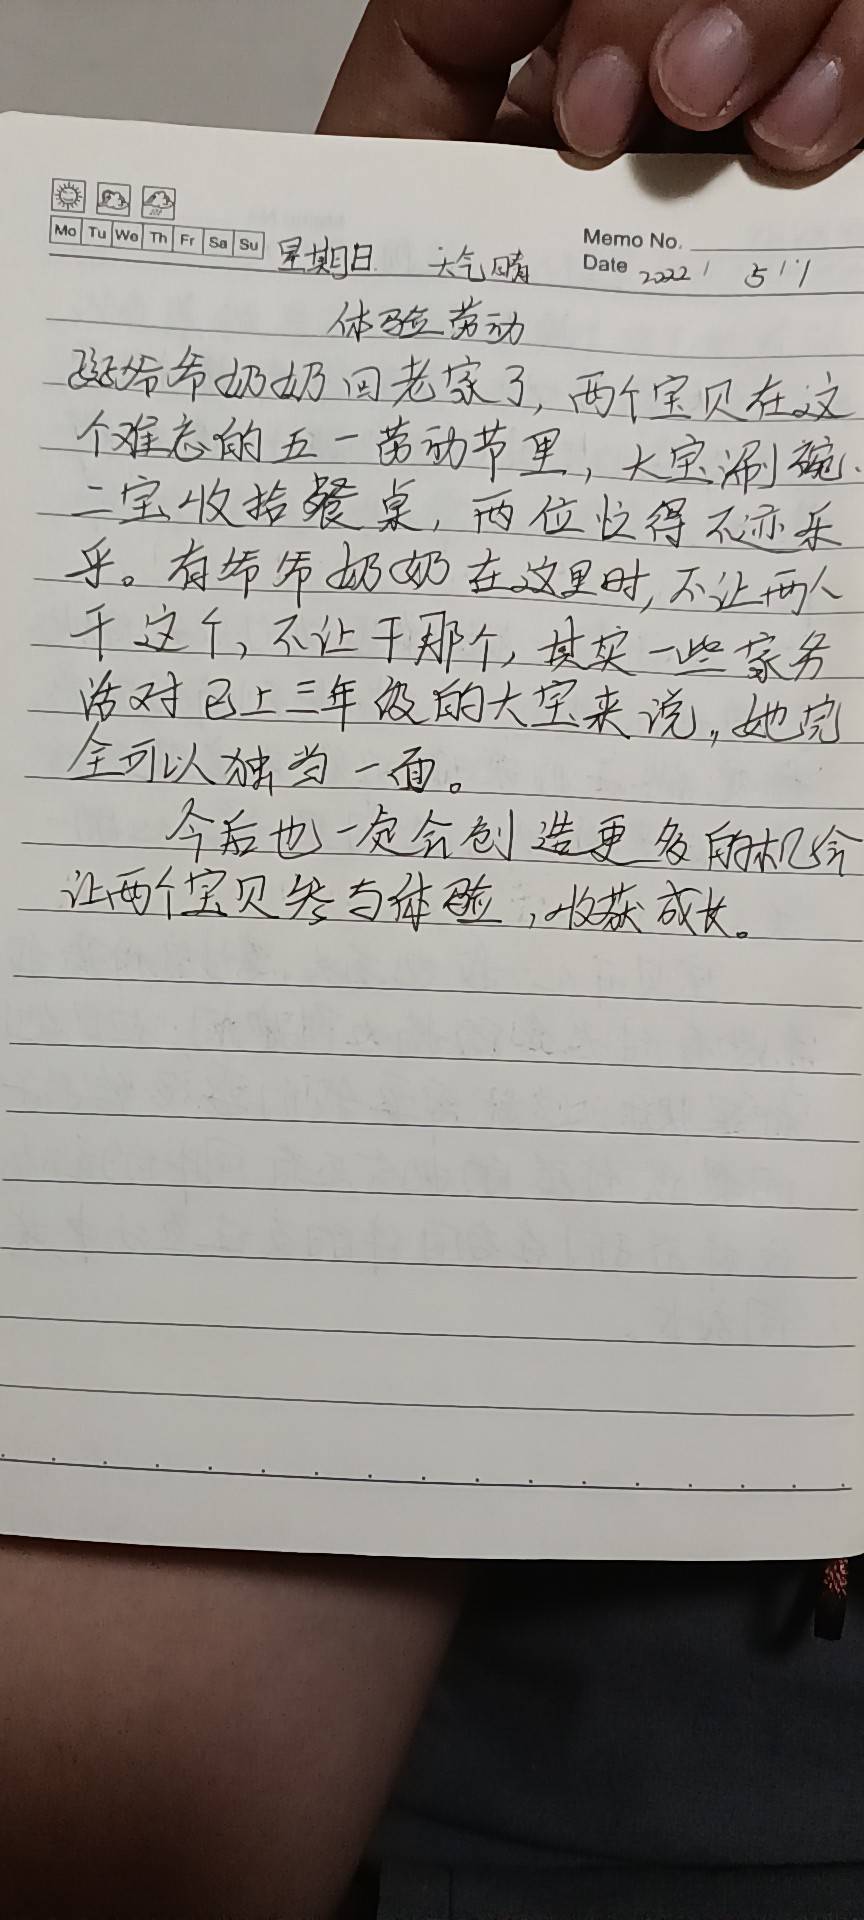 Mo Tu We Th Fr Sa Su
星期日 天气晴
Memo No.
Date 2022 / 5 / 1
体验劳动
爷爷奶奶回老家了,两个宝贝在这
个难忘的五一劳动节里,大宝涮碗、
二宝收拾餐桌,两位忙得不亦乐
乎。有爷爷奶奶在这里时,不让两人
干这个,不让干那个,其实一些家务
活对已上三年级的大宝来说,她完
全可以独当一面。
今后也一定会创造更多的机会
让两个宝贝参与体验,收获成长。